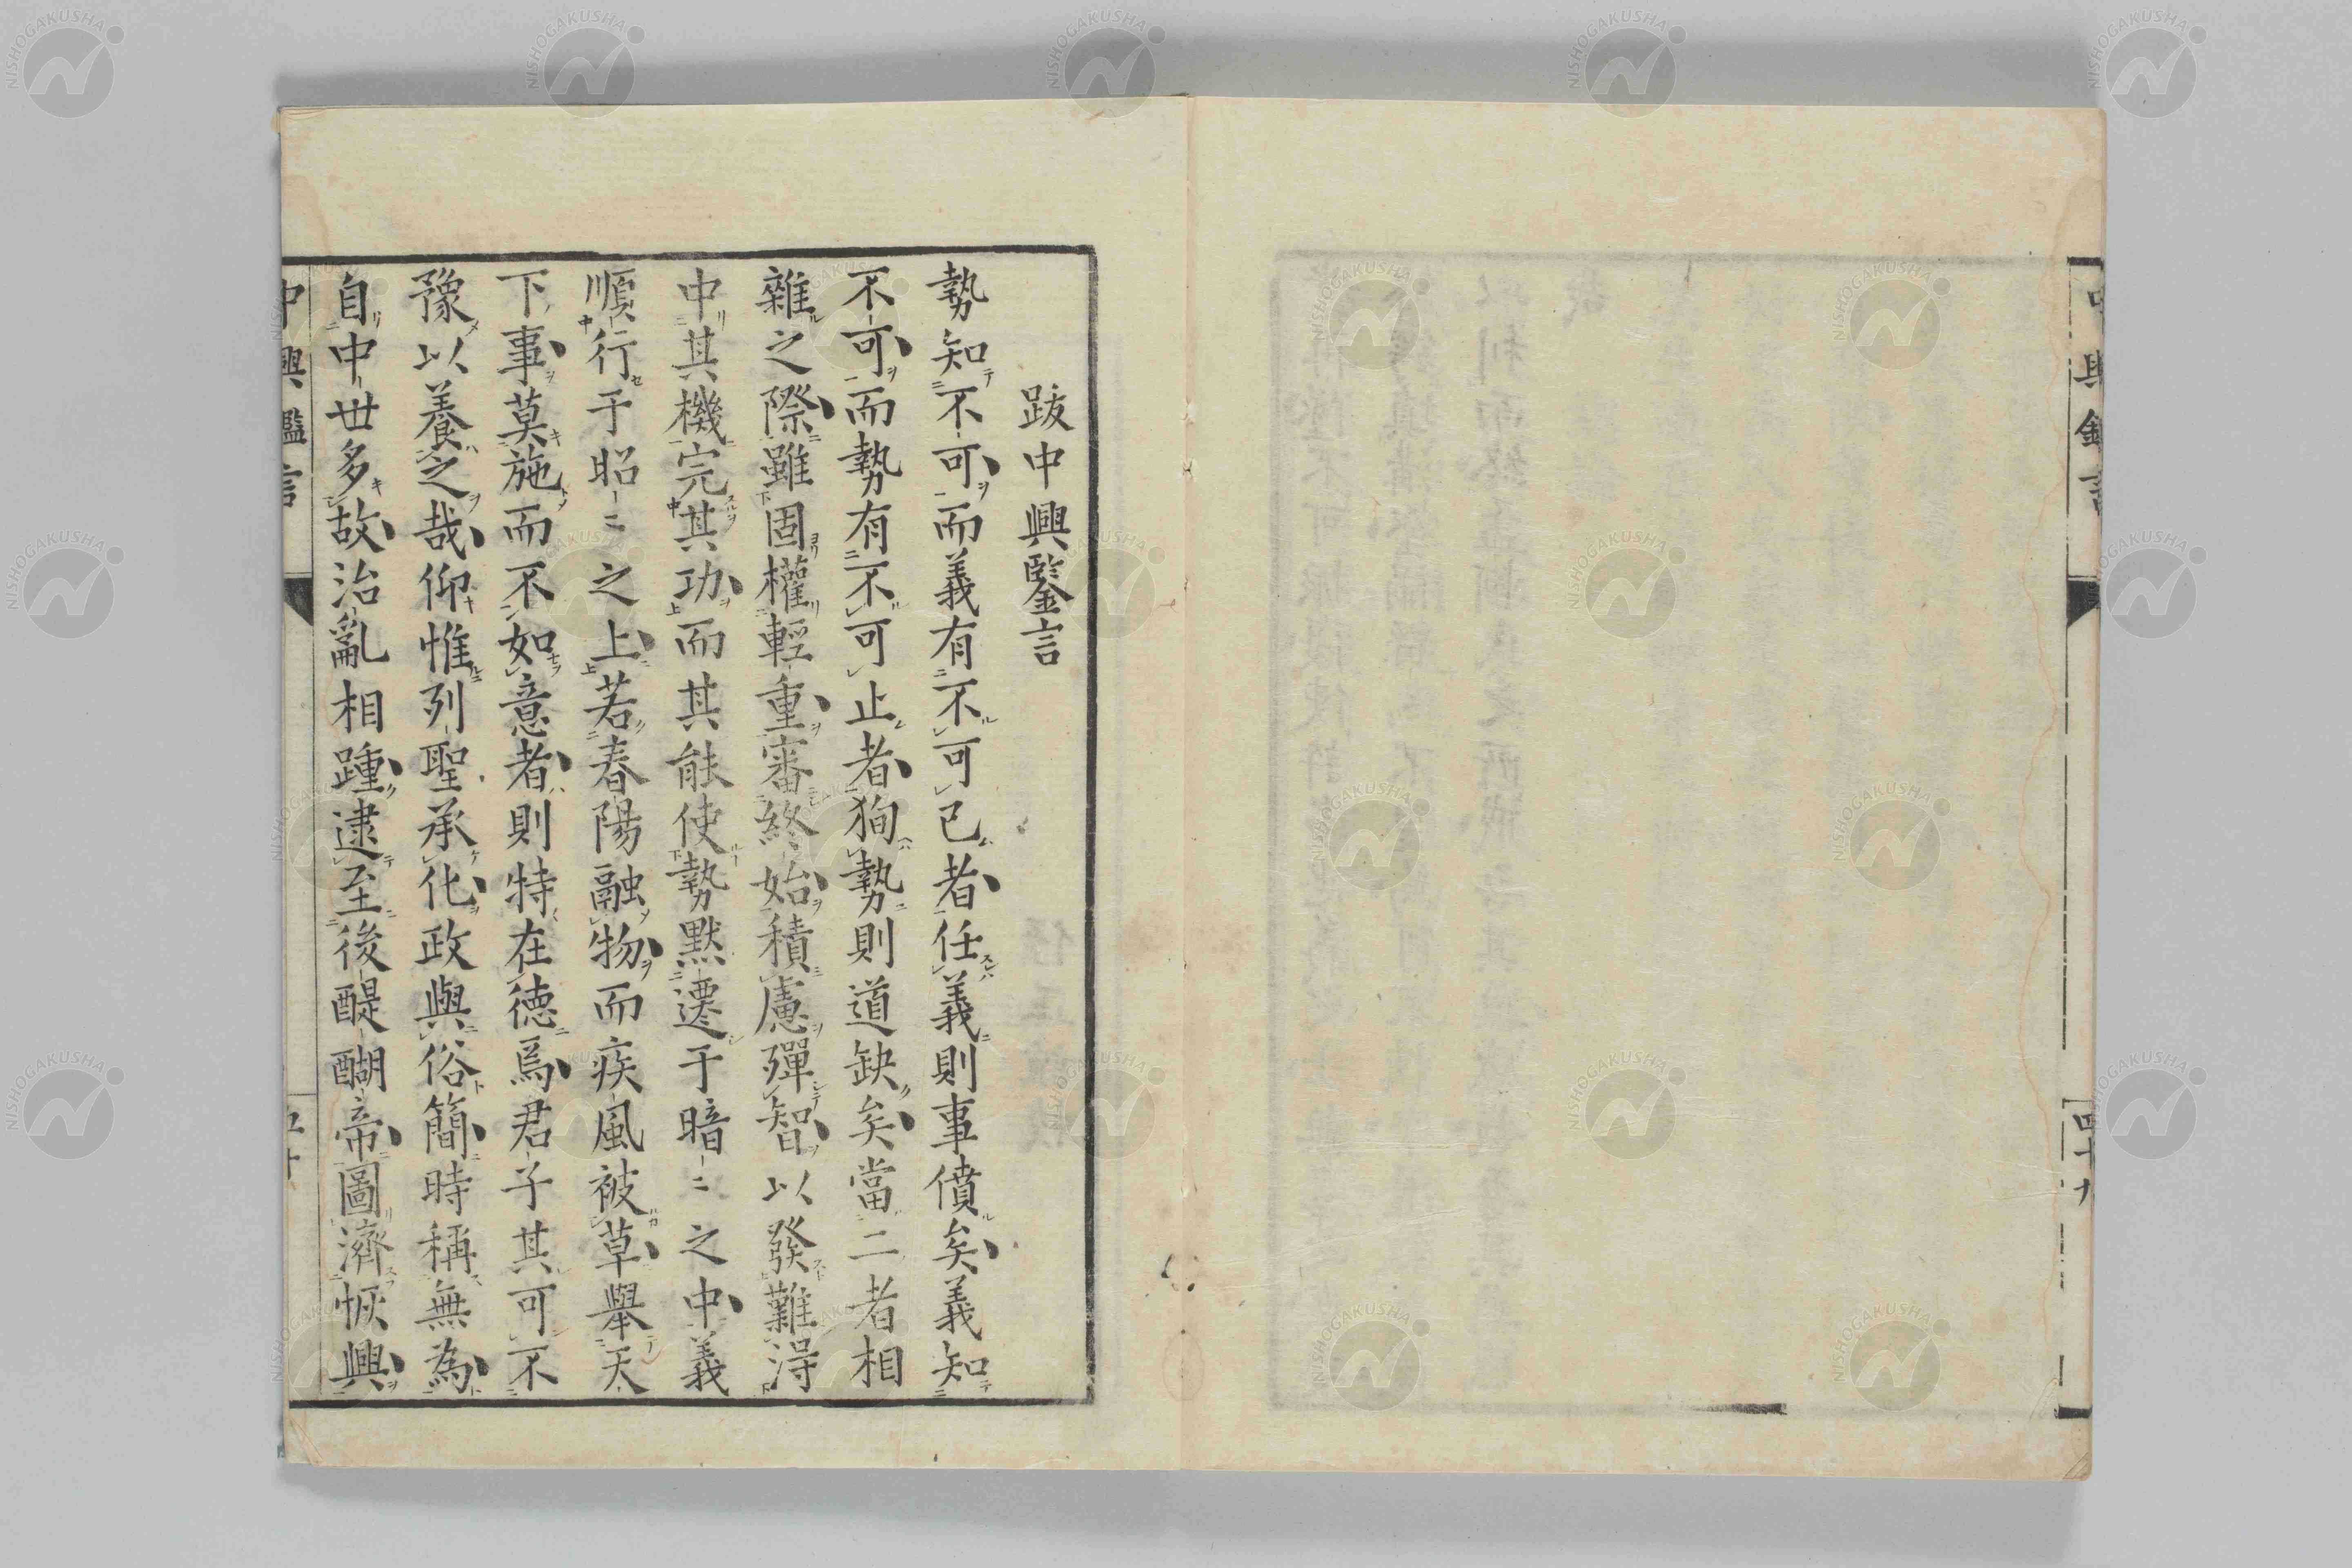 跋中興鑒言
勢知不可而義有不可已者任義則事僨矣義知
不可而勢有不可止者狥勢則道缺矣當二者相
雜之際雖固權輕重審終始積慮殫智以發難得
中其機完其功而其能使勢黙遷于暗〻之中義
順行于昭〻之上若春陽融物而疾風被草舉天
下事莫施而不如意者則特在德焉君子其可不
豫以養之哉仰惟列聖承化政與俗簡時稱無為
自中世多故治亂相踵逮至後醍醐帝圖濟恢興
中興鑑言
中興鑑言
四十九